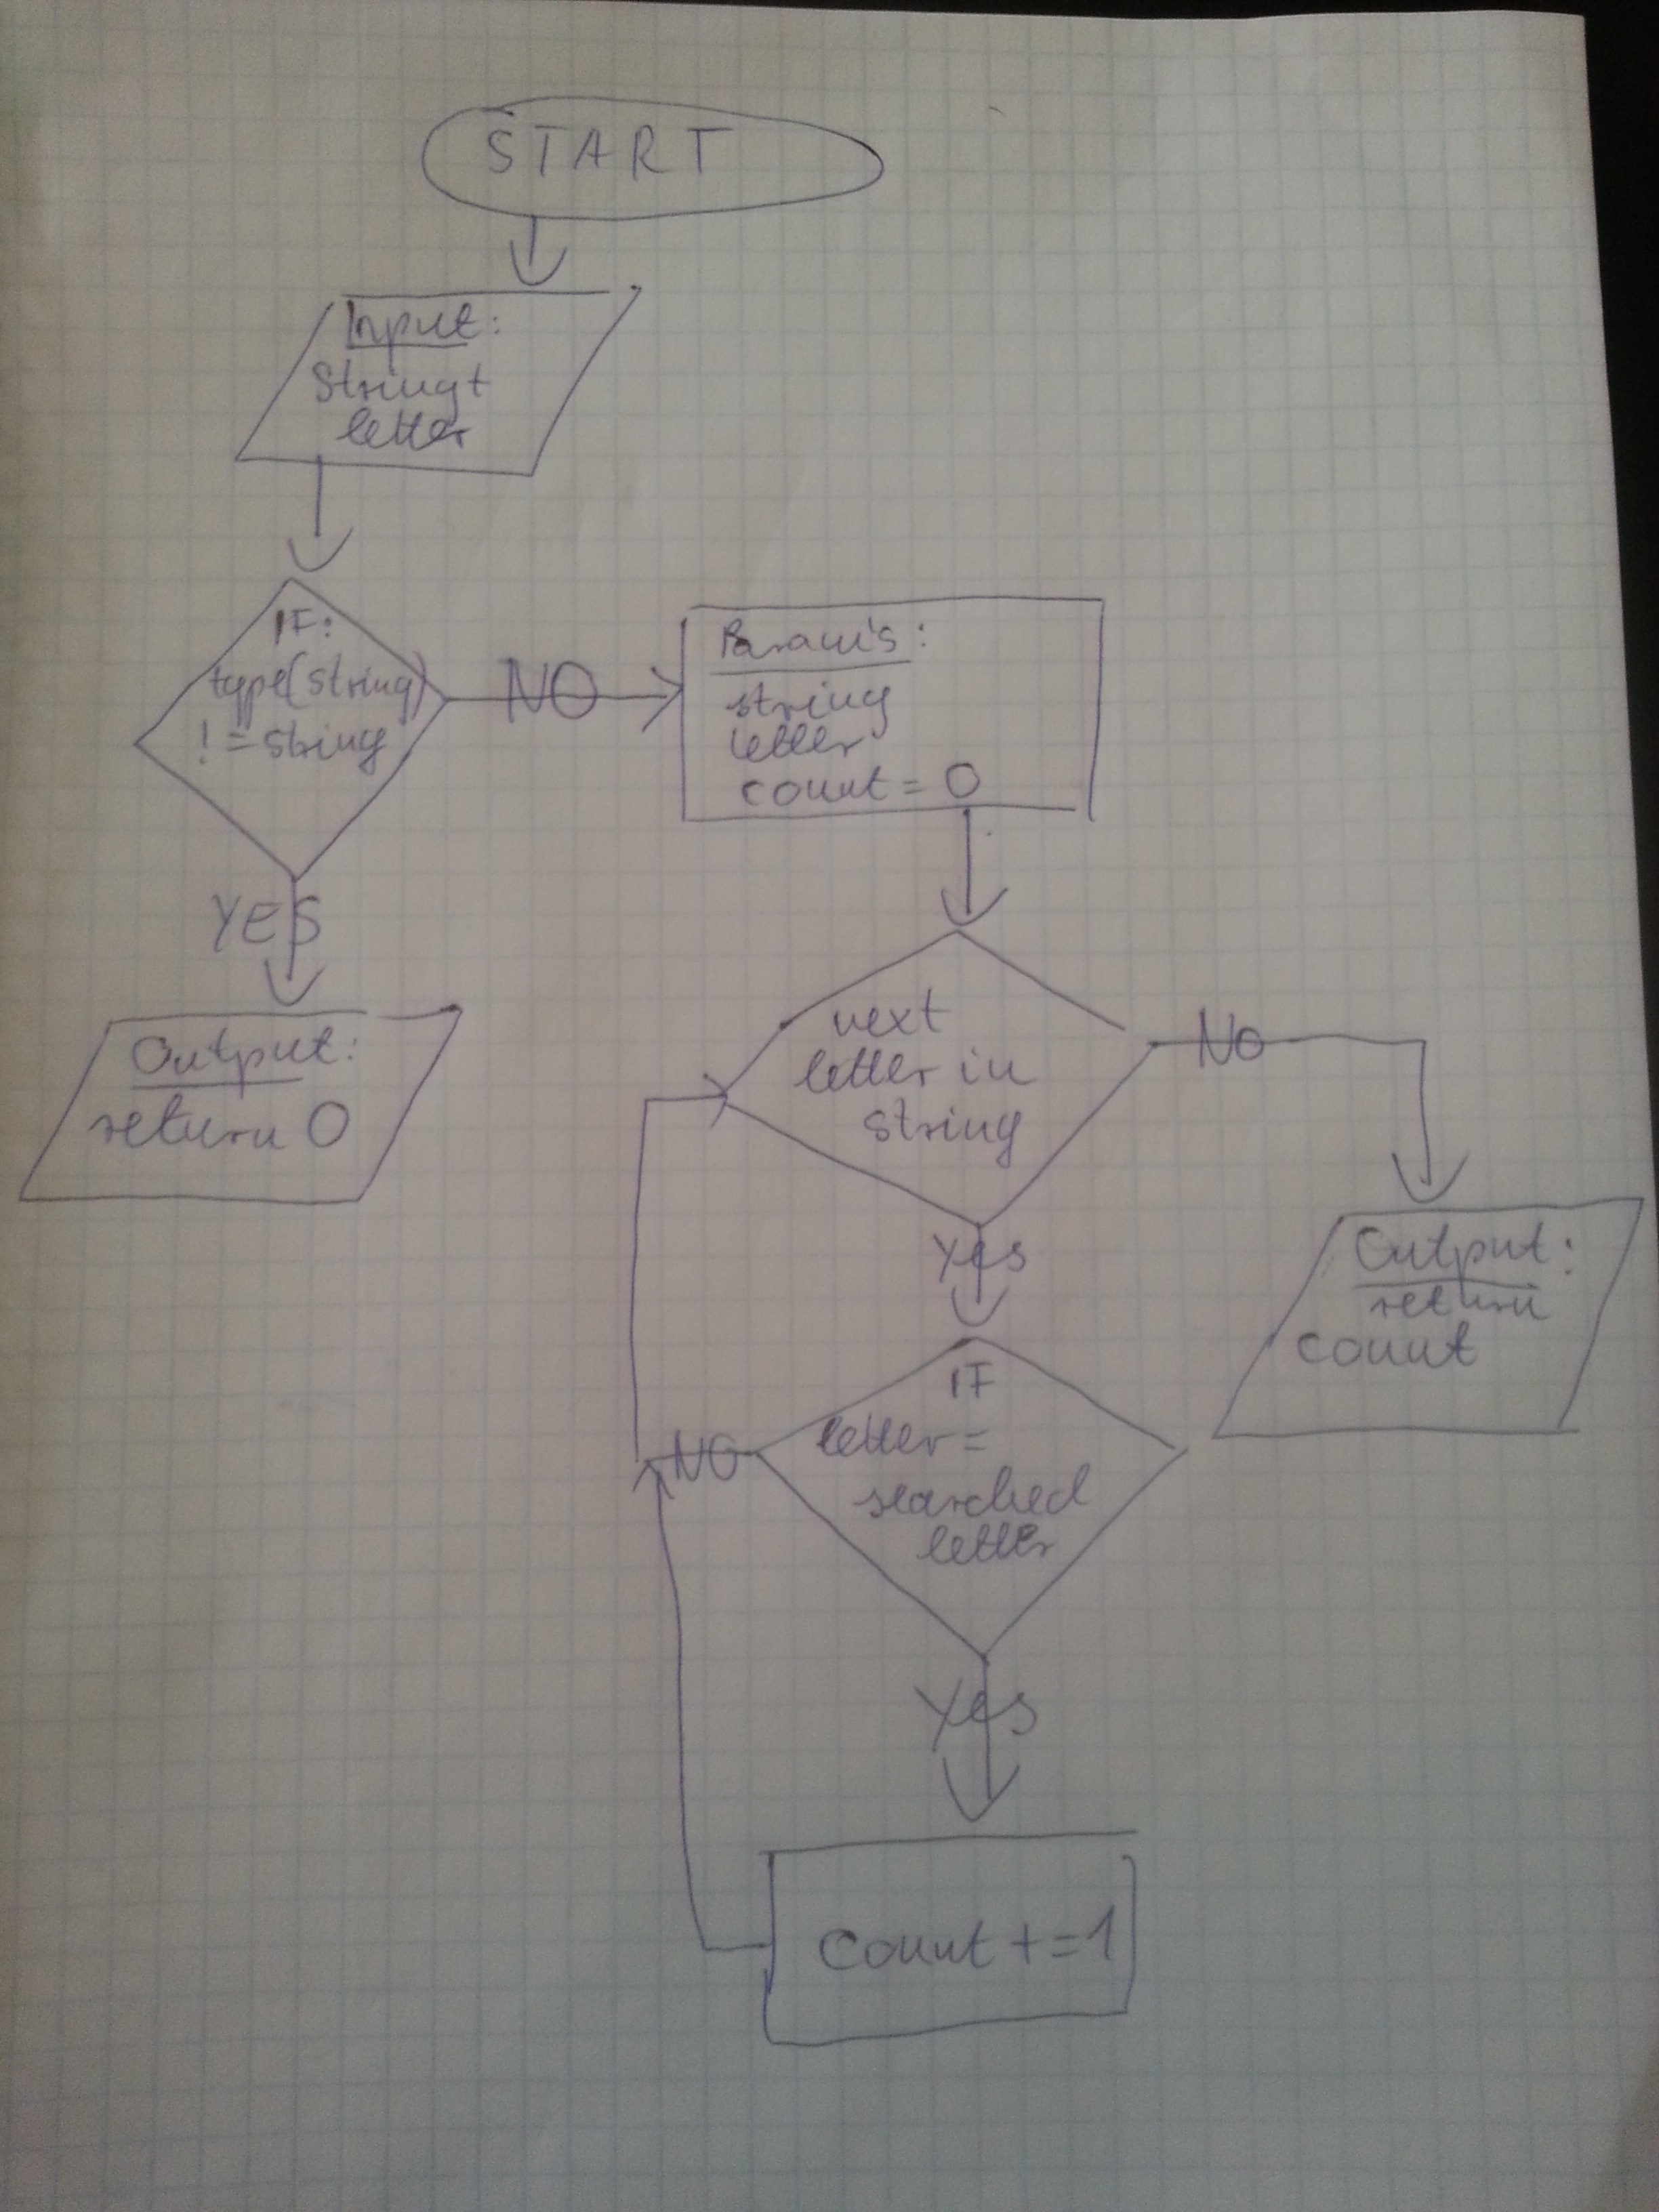 START
Input:
String+
letter
IF:
type(string)
!=string
NO
Param's:
string
letter
count = 0
YES
Output:
return 0
next
letter in
string
No
Yes
Output:
return
count
IF
letter =
searched
letter
NO
Yes
count +=1